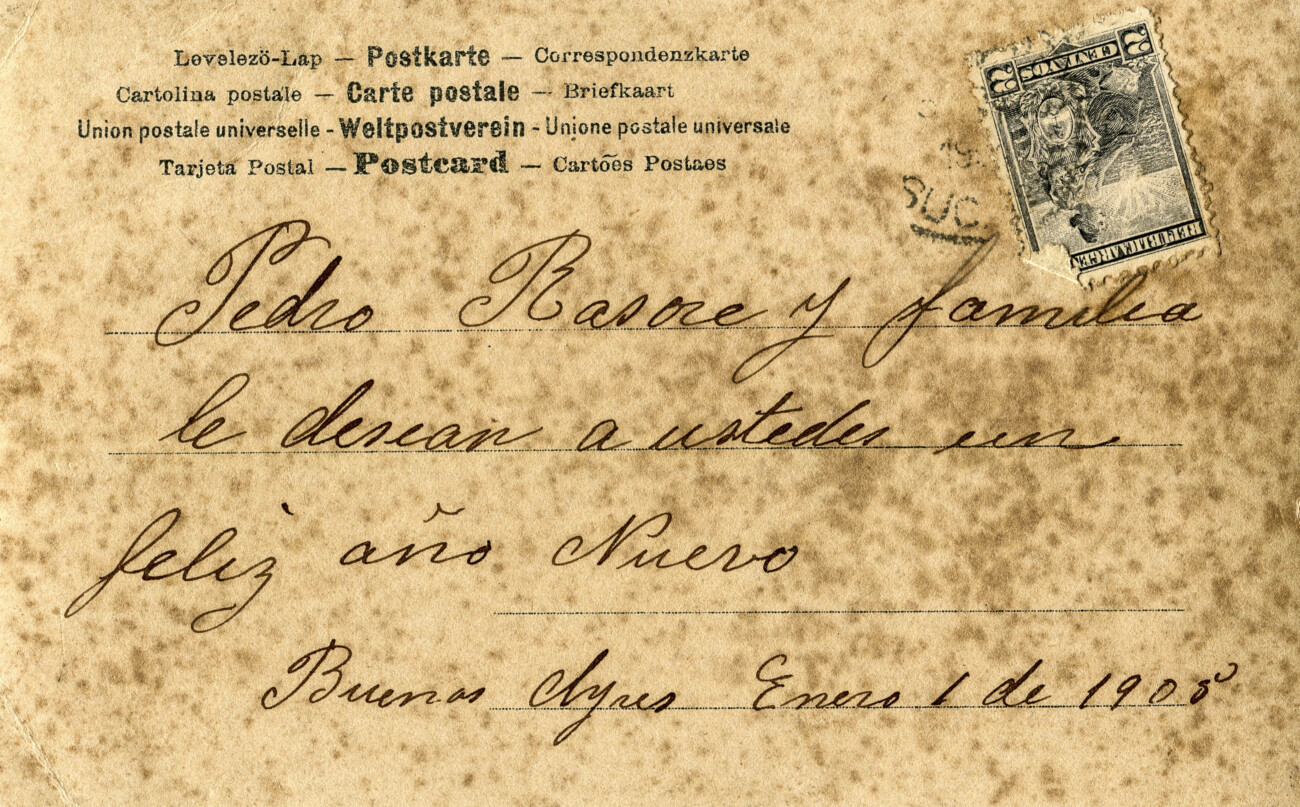 Levelezö-Lap — Postkarte — Correspondenzkarte
Cartolina postale — Carte postale — Briefkaart
Union postale universelle - Weltpostverein - Unione postale universale
Tarjeta Postal — Postcard — Cartões Postaes
2 CENTAVOS 2
REPUBLICA ARGEN
SUC
Pedro Rasore y familia
le desean a ustedes un
feliz año Nuevo
Buenos Ayres Enero 1 de 1905